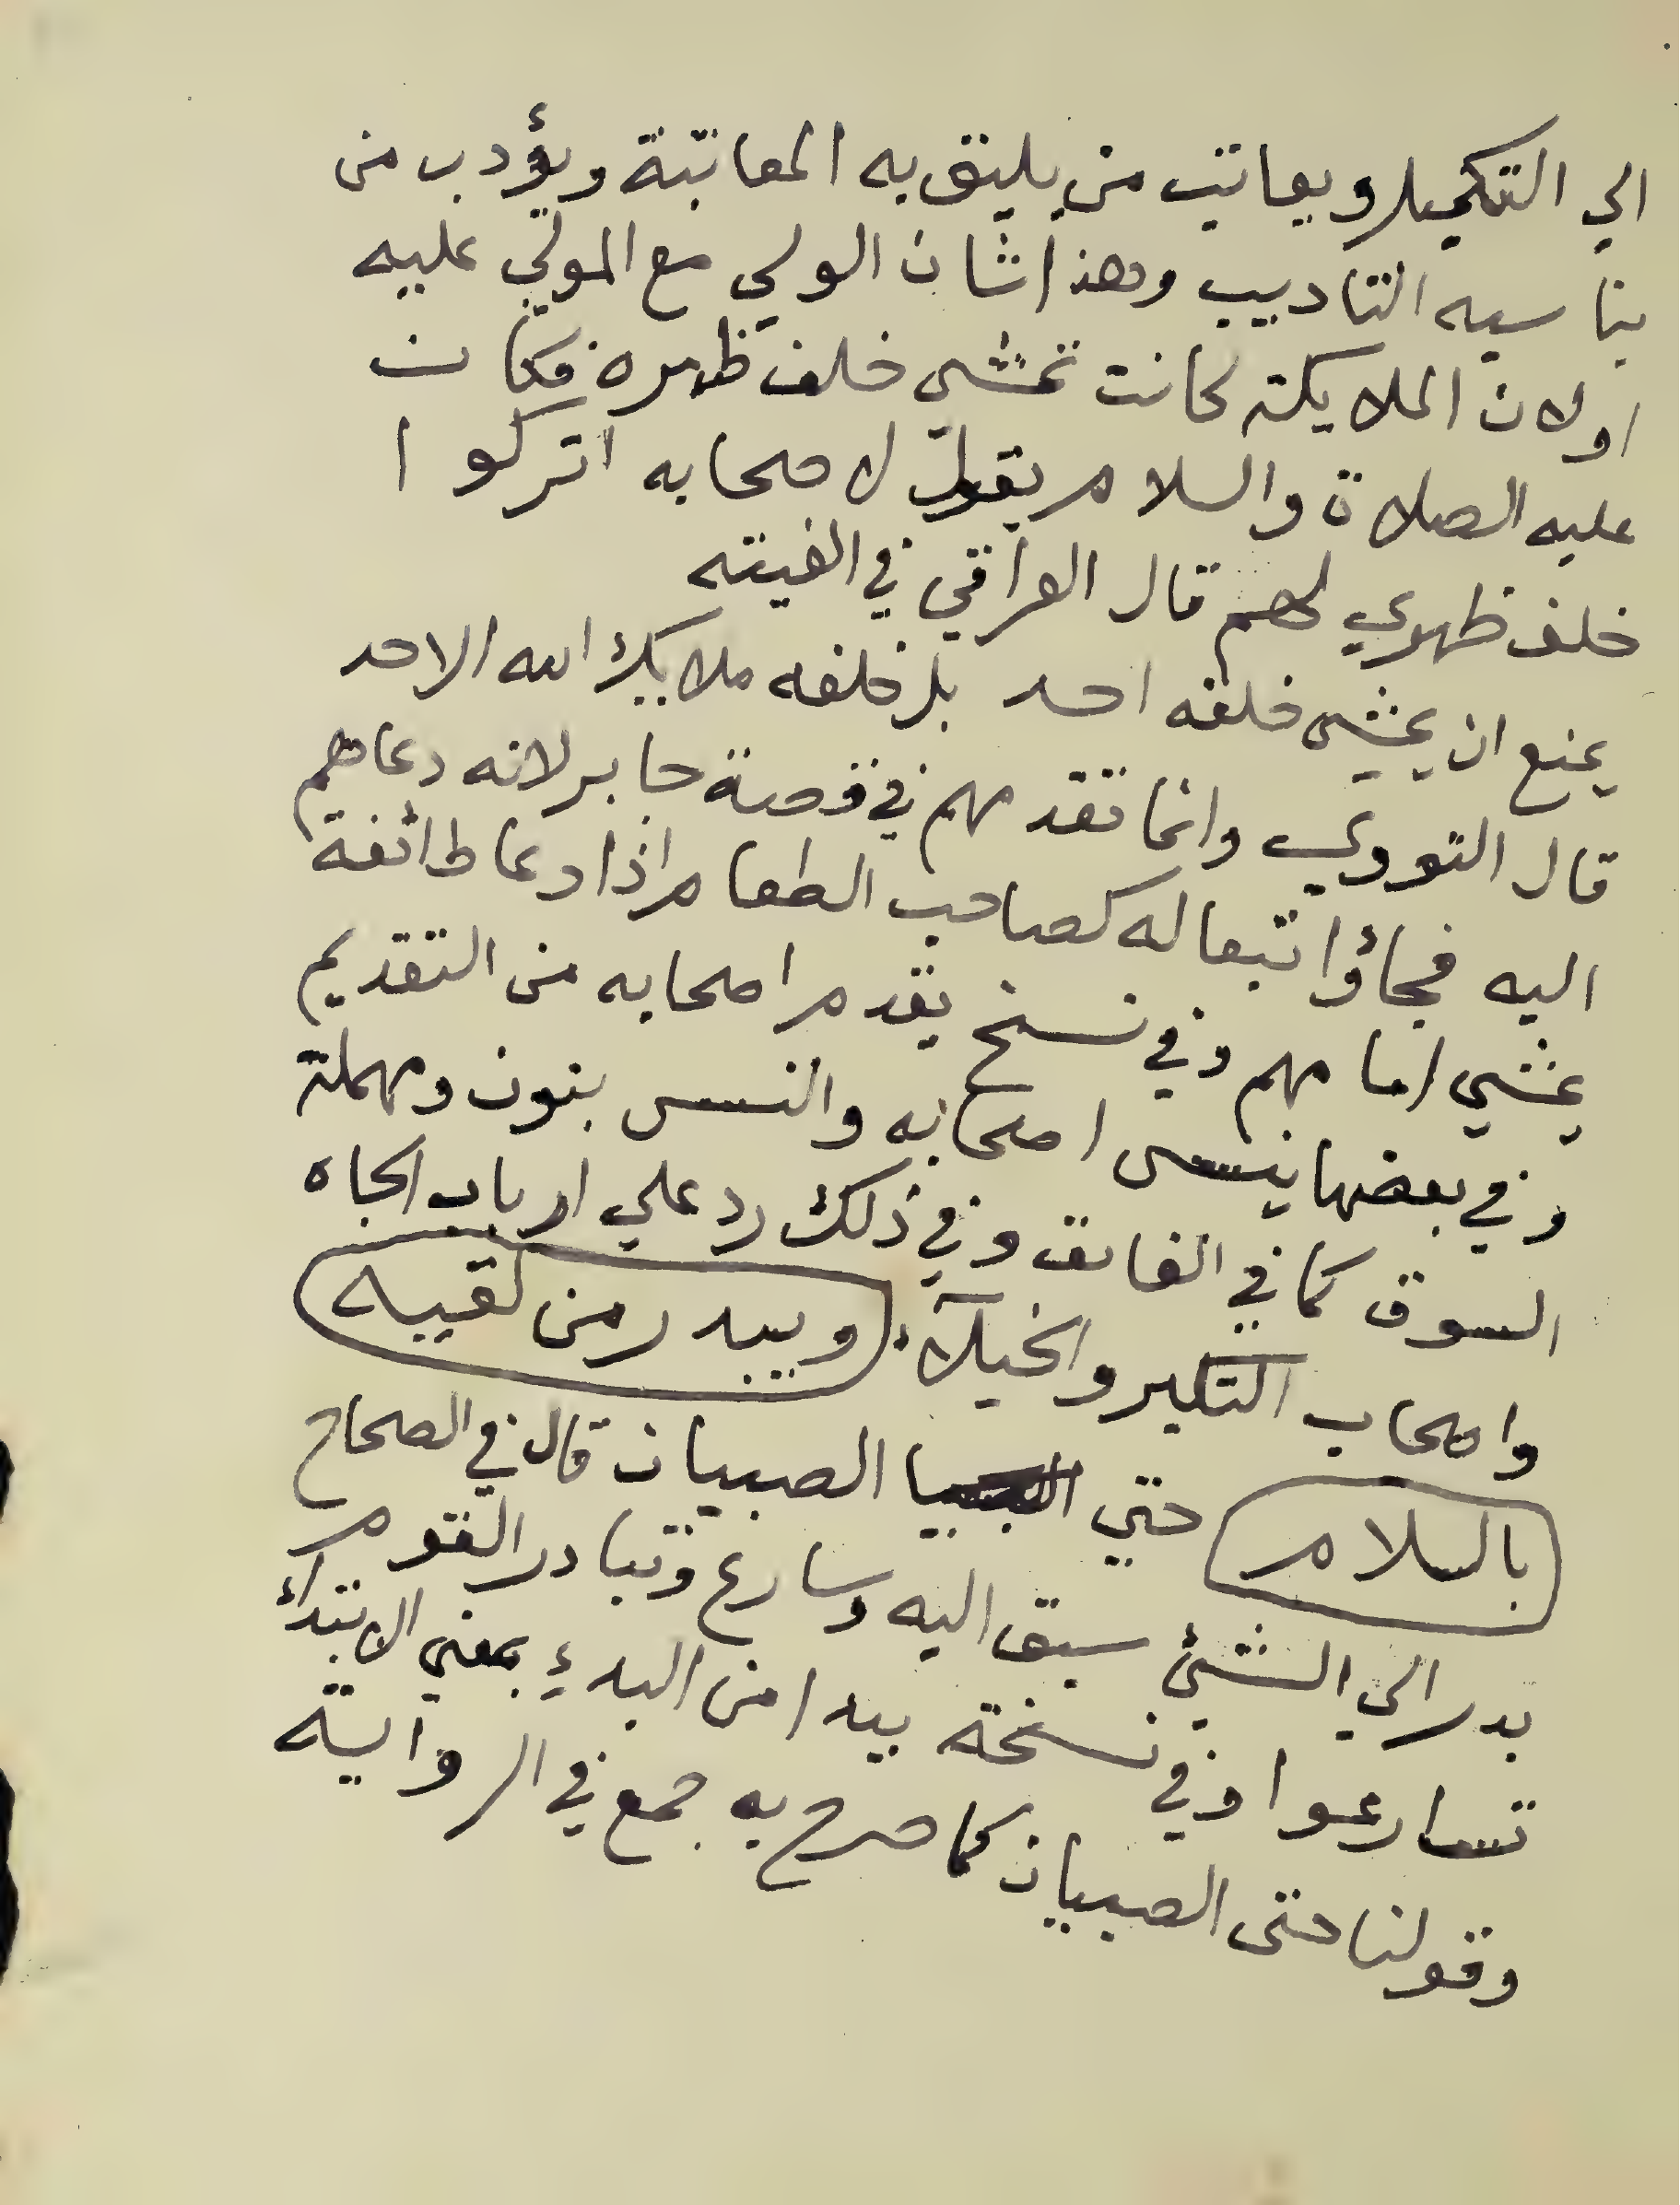 الي التكميل ويعاتب من يليق به المعاتبة ويؤدب من
يناسبه التاديب وهذا شان الولي مع المولي عليه
اولان الملايكة كانت تمشي خلف ظهره فكان
عليه الصلاة والسلام يقول لاصحابه اتركوا
خلف ظهري لهم قال العراقي في الفيته
يمنع ان يمشي خلفه احد بل خلفه ملايك الله الاحد
قال النووي وانما تقدمهم في قصة جابر لانه دعاهم
اليه فجاؤا تبعا له كصاحب الطعام اذا دعا طائفة
يمشي امامهم وفي نسخ يقدم اصحابه من التقديم
وفي بعضها ينس اصحابه والنس بنون ومهملة
السوق كما في الفائق وفي ذلك رد علي ارباب الجاه
واصحاب التكبر والخيلاء. ويبدر من لقيه
بالسلام حتي الصبيان قال في الصحاح
بدر الي الشيئ سبق اليه وسارع وتبادر القوم
تسارعوا وفي نسخة يبدا من البدء بمعني الابتداء
وقولنا حتى الصبيان كما صرح به جمع في الرواية